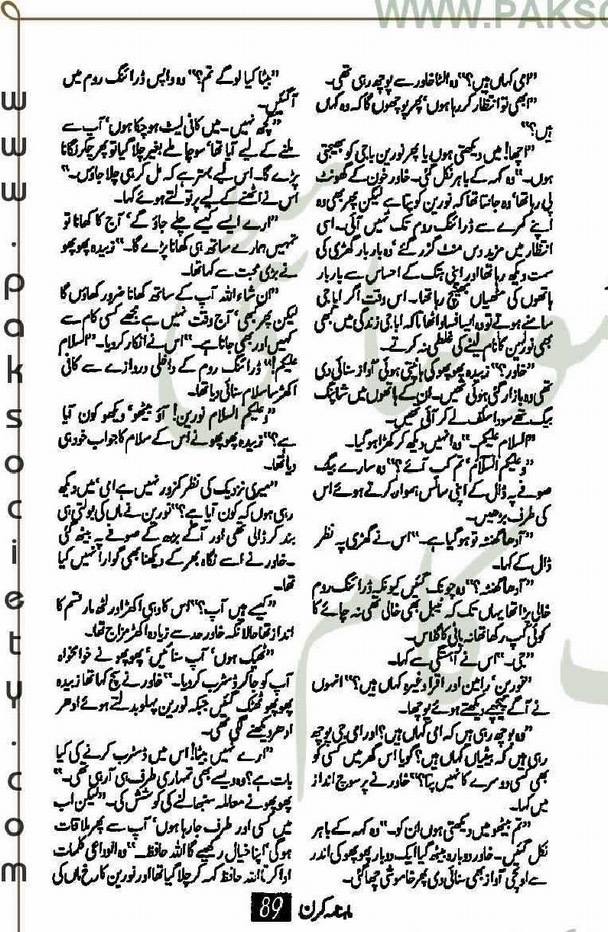 WWW.PAKSO
www.paksociety.com
"امی کہاں ہیں؟" وہ الٹا خاور سے پوچھ رہی تھی۔
"ابھی تو انتظار کر رہا ہوں' پھر پوچھوں گا کہ وہ کہاں
ہیں؟"
"اچھا! میں دیکھتی ہوں یا پھر نورین باجی کو بھیجتی
ہوں۔" وہ کہہ کے باہر نکل گئی۔ خاور خون کے گھونٹ
پی رہا تھا' وہ جانتا تھا کہ نورین کو پتا ہے لیکن پھر بھی وہ
اپنے کمرے سے ڈرائنگ روم تک نہیں آئی۔ اسی
انتظار میں مزید دس منٹ گزر گئے' وہ بار بار گھڑی کی
سمت دیکھ رہا تھا اور اپنی ہتک کے احساس سے بار بار
ہاتھوں کی مٹھیاں بھینچ رہا تھا۔ اس وقت اگر ابا جی
سامنے ہوتے تو وہ ایسا فساد اٹھاتا کہ ابا جی زندگی میں کبھی
بھی نورین کا نام لینے کی غلطی نہ کرتے۔
"خاور؟" زبیدہ پھوپھو کی ہانپتی ہوئی آواز سنائی دی
تھی وہ بازار گئی ہوئی تھیں۔ ان کے ہاتھوں میں شاپنگ
بیگ تھے سودا سلف لے کر آئی تھیں۔
"السلام علیکم۔" وہ انہیں دیکھ کر کھڑا ہو گیا۔
"وعلیکم السلام' تم کب آئے؟" وہ سارے بیگ
صوفے پہ ڈال کے اپنی سانس ہموار کرتے ہوئے اس
کی طرف بڑھیں۔
"آدھا گھنٹہ تو ہو گیا ہے۔" اس نے گھڑی پہ نظر
ڈال کے کہا۔
"آدھا گھنٹہ؟" وہ چونک گئیں کیونکہ ڈرائنگ روم
خالی پڑا تھا یہاں تک کہ ٹیبل بھی خالی تھی نہ چائے کا
کوئی کپ رکھا تھا نہ پانی کا گلاس۔
"جی۔" اس نے آہستگی سے کہا۔
"نورین' رامین اور اقرا وغیرہ کہاں ہیں؟" انہوں
نے آگے پیچھے دیکھتے ہوئے پوچھا۔
"وہ پوچھ رہی ہیں کہ امی کہاں ہیں؟ اور امی جی پوچھ
رہی ہیں کہ بیٹیاں کہاں ہیں؟ گویا اس گھر میں کسی کو
بھی کسی دوسرے کا نہیں پتا؟" خاور نے پرسوچ انداز
میں کہا۔
"تم بیٹھو میں دیکھتی ہوں ان کو۔" وہ کہہ کے باہر
نکل گئیں۔ خاور دوبارہ بیٹھ گیا ایک دو بار پھوپھو کی اندر
سے اونچی آواز بھی سنائی دی پھر خاموشی چھا گئی۔
"بیٹا کیا لو گے تم؟" وہ واپس ڈرائنگ روم میں
آ گئیں۔
"کچھ نہیں۔ میں کافی لیٹ ہو چکا ہوں' آپ سے
ملنے کے لیے آیا تھا' سوچا ملے بغیر چلا گیا تو پھر چکر لگانا
پڑے گا۔ اس لیے بہتر ہے کہ مل کر ہی چلا جاؤں۔"
اس نے اٹھنے کے لیے پر تولتے ہوئے کہا۔
"ارے ایسے کیسے چلے جاؤ گے' آج کا کھانا تو
تمہیں ہمارے ساتھ ہی کھانا پڑے گا۔" زبیدہ پھوپھو
نے بڑی محبت سے کہا تھا۔
"ان شاء اللہ آپ کے ساتھ کھانا ضرور کھاؤں گا
لیکن پھر کبھی' آج وقت نہیں ہے مجھے کسی کام سے
کہیں اور بھی جانا ہے۔" اس نے انکار کر دیا۔ "السلام
علیکم!" ڈرائنگ روم کے داخلی دروازے سے کافی
اکھڑ سا سلام سنائی دیا تھا۔
"وعلیکم السلام نورین! آؤ بیٹھو' دیکھو کون آیا
ہے؟" زبیدہ پھوپھو نے اس کے سلام کا جواب خود ہی
دیا تھا۔
"میری نزدیک کی نظر کمزور نہیں ہے امی' میں دیکھ
رہی ہوں کہ کون آیا ہے؟" نورین نے ماں کی بولتی ہی
بند کر ڈالی تھی اور آگے بڑھ کے صوفے پہ بیٹھ گئی
۔ خاور نے اسے نگاہ بھر کے دیکھنا بھی گوارا نہیں کیا
تھا۔
"کیسے ہیں آپ؟" اس کا وہی اکھڑ اور لٹھ مار قسم کا
انداز تھا حالانکہ خاور حد سے زیادہ اکھڑ مزاج تھا۔
"ٹھیک ہوں' آپ سنائیں' پھوپھو نے خوامخواہ
آپ کو جا کر ڈسٹرب کر دیا۔" خاور نے سچ کہا تھا زبیدہ
پھوپھو ٹھٹک گئیں جبکہ نورین پہلو بدلتے ہوئے ادھر
ادھر دیکھنے لگی تھی۔
"ارے نہیں بیٹا! اس میں ڈسٹرب کرنے کی کیا
بات ہے؟ وہ ویسے بھی تمہاری طرف ہی آ رہی تھی۔"
پھوپھو نے معاملہ سنبھالنے کی کوشش کی۔ "لیکن اب
میں کسی اور طرف جا رہا ہوں' آپ سے پھر ملاقات
ہو گی' اپنا خیال رکھیے گا اللہ حافظ۔" وہ الوداعی کلمات
ادا کرتا اللہ حافظ کہہ کر چلا گیا تھا اور نورین کا رد عمل ماں کی
ماہنامہ کرن 89